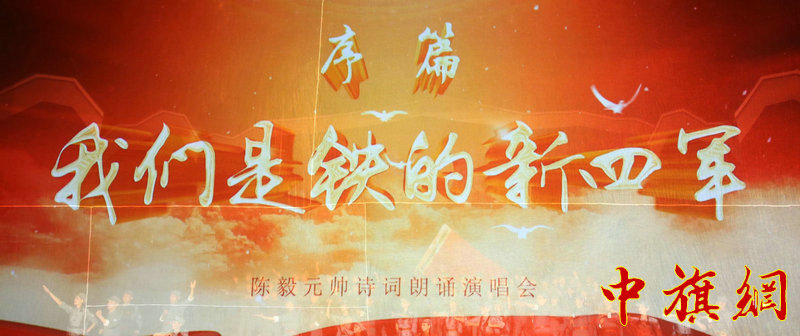 序篇
我们是铁的新四军
陈毅元帅诗词朗诵演唱会
中旗網